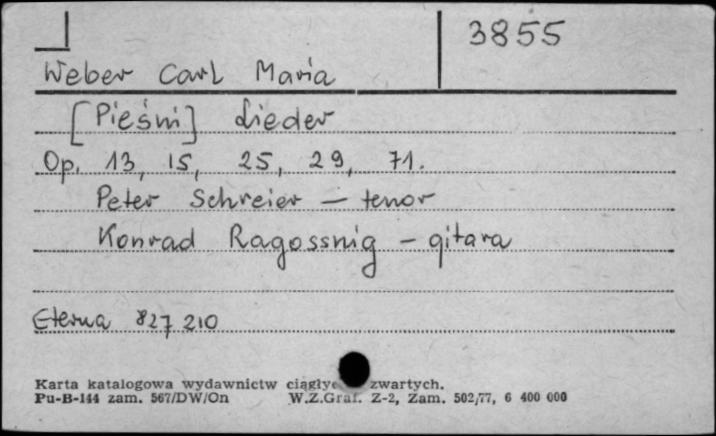 3855
Weber Carl Maria
[Pieśni] Lieder
Op. 13, 15, 25, 29, 71.
Peter Schreier – tenor
Konrad Ragossnig – gitara
Eterna 827 210
Karta katalogowa wydawnictw zwartych.
Pu-B-144 zam. 567/DW/On W.Z.Graf. Z-2, Zam. 502/77, 6 400 000